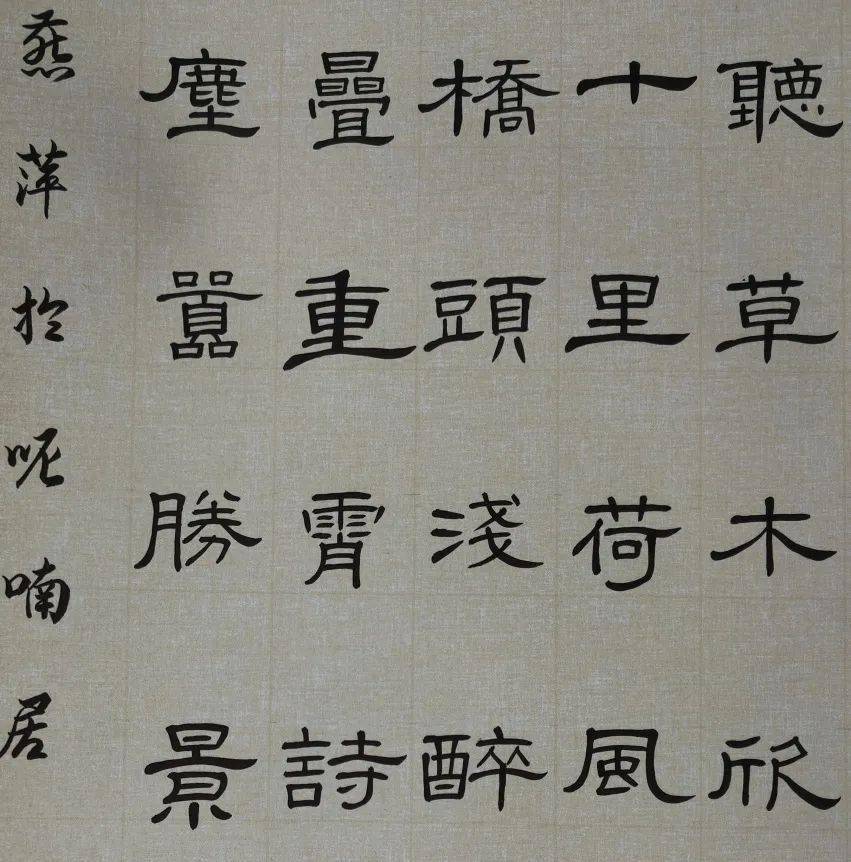 聽草木欣
十里荷風
橋頭淺醉
疊重霄詩
塵囂勝景
燕萍於呢喃居